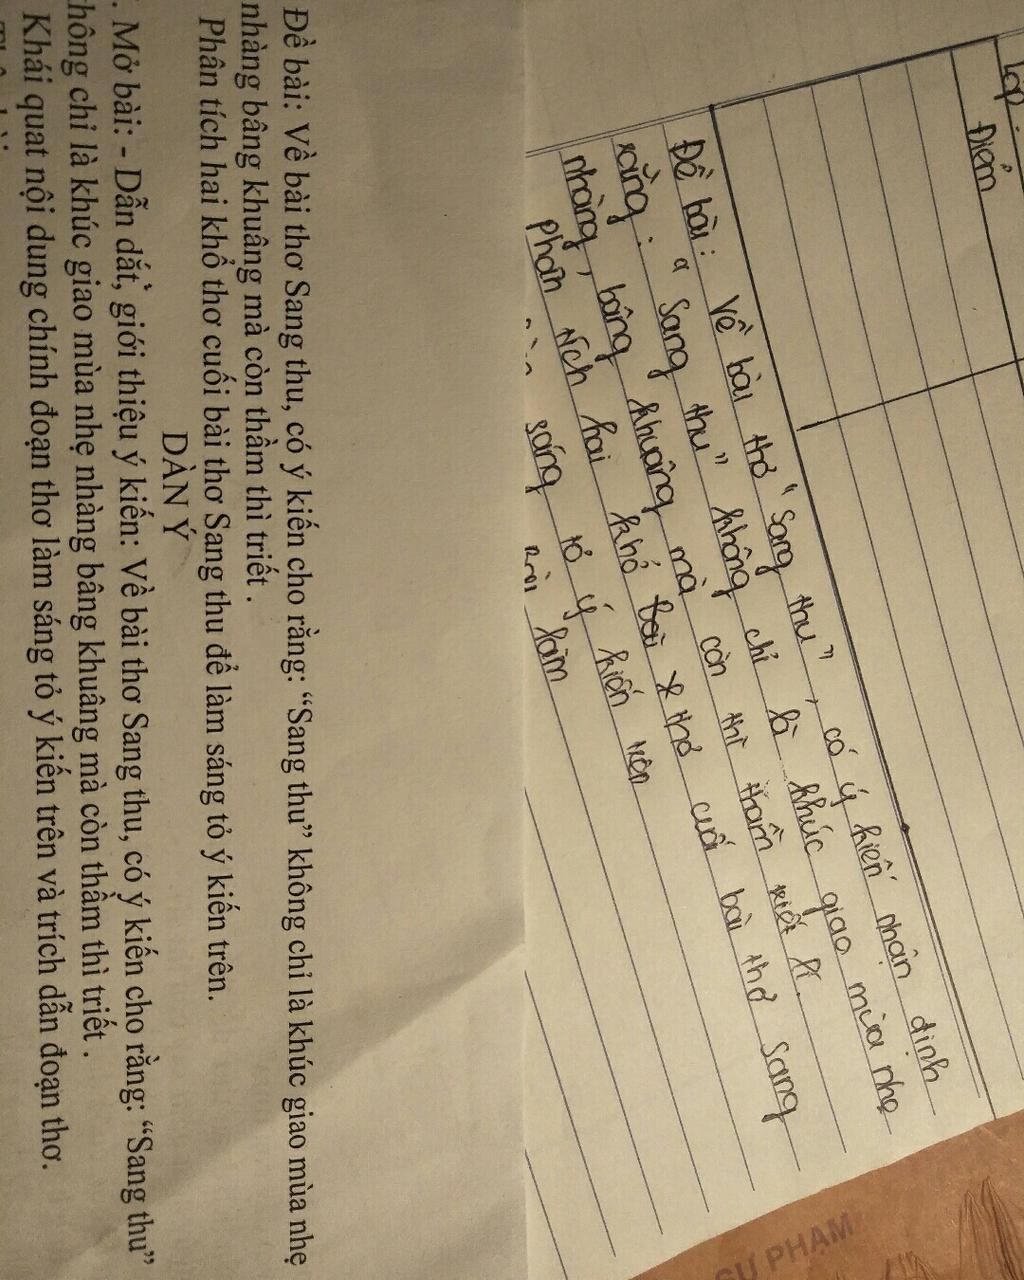 Đề bài: Về bài thơ Sang thu, có ý kiến cho rằng: “Sang thu” không chỉ là khúc giao mùa nhẹ
nhàng bâng khuâng mà còn thầm thì triết .
Phân tích hai khổ thơ cuối bài thơ Sang thu để làm sáng tỏ ý kiến trên.
DÀN Ý
. Mở bài: - Dẫn dắt, giới thiệu ý kiến: Về bài thơ Sang thu, có ý kiến cho rằng: “Sang thu”
hông chỉ là khúc giao mùa nhẹ nhàng bâng khuâng mà còn thầm thì triết .
Khái quat nội dung chính đoạn thơ làm sáng tỏ ý kiến trên và trích dẫn đoạn thơ.
Lớp :
Điểm
Đề bài : Về bài thơ “Sang thu”, có ý kiến nhận định
rằng : “Sang thu” không chỉ là khúc giao mùa nhẹ
nhàng, bâng khuâng mà còn thì thầm triết lí.
Phân tích hai khổ bài thơ cuối bài thơ Sang
sáng tỏ ý kiến trên
làm
SƯ PHẠM